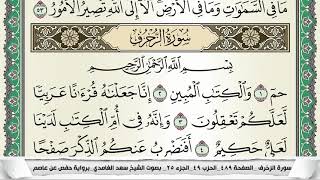 مَا فِي السَّمَٰوَٰتِ وَمَا فِي الْأَرْضِ أَلَا إِلَى اللَّهِ تَصِيرُ الْأُمُورُ ٥٣
سُورَةُ الزُّخْرُفِ
بِسْمِ اللَّهِ الرَّحْمَٰنِ الرَّحِيمِ
حمٓ ١ وَالْكِتَٰبِ الْمُبِينِ ٢ إِنَّا جَعَلْنَٰهُ قُرْءَٰنًا عَرَبِيًّا
لَّعَلَّكُمْ تَعْقِلُونَ ٣ وَإِنَّهُۥ فِيٓ أُمِّ الْكِتَٰبِ لَدَيْنَا
لَعَلِيٌّ حَكِيمٌ ٤ أَفَنَضْرِبُ عَنكُمُ الذِّكْرَ صَفْحًا
سورة الزخرف . الصفحة ٤٨٩ . الحزب ٤٩ . الجزء ٢٥ . بصوت الشيخ سعد الغامدي . برواية حفص عن عاصم